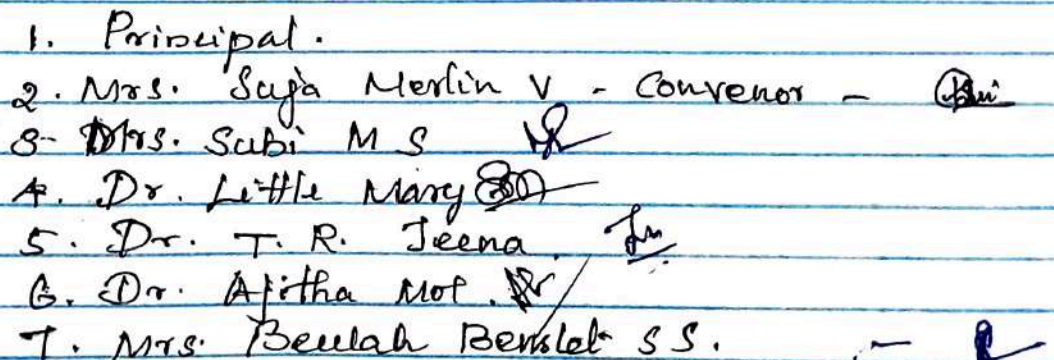 1. Principal.
2. Mrs. Suja Merlin V - Convenor -
3- Mrs. Subi M S
4. Dr. Little Mary
5. Dr. T. R. Jeena
6. Dr. Ajitha Mol.
7. Mrs. Beulah Benslet S S. -